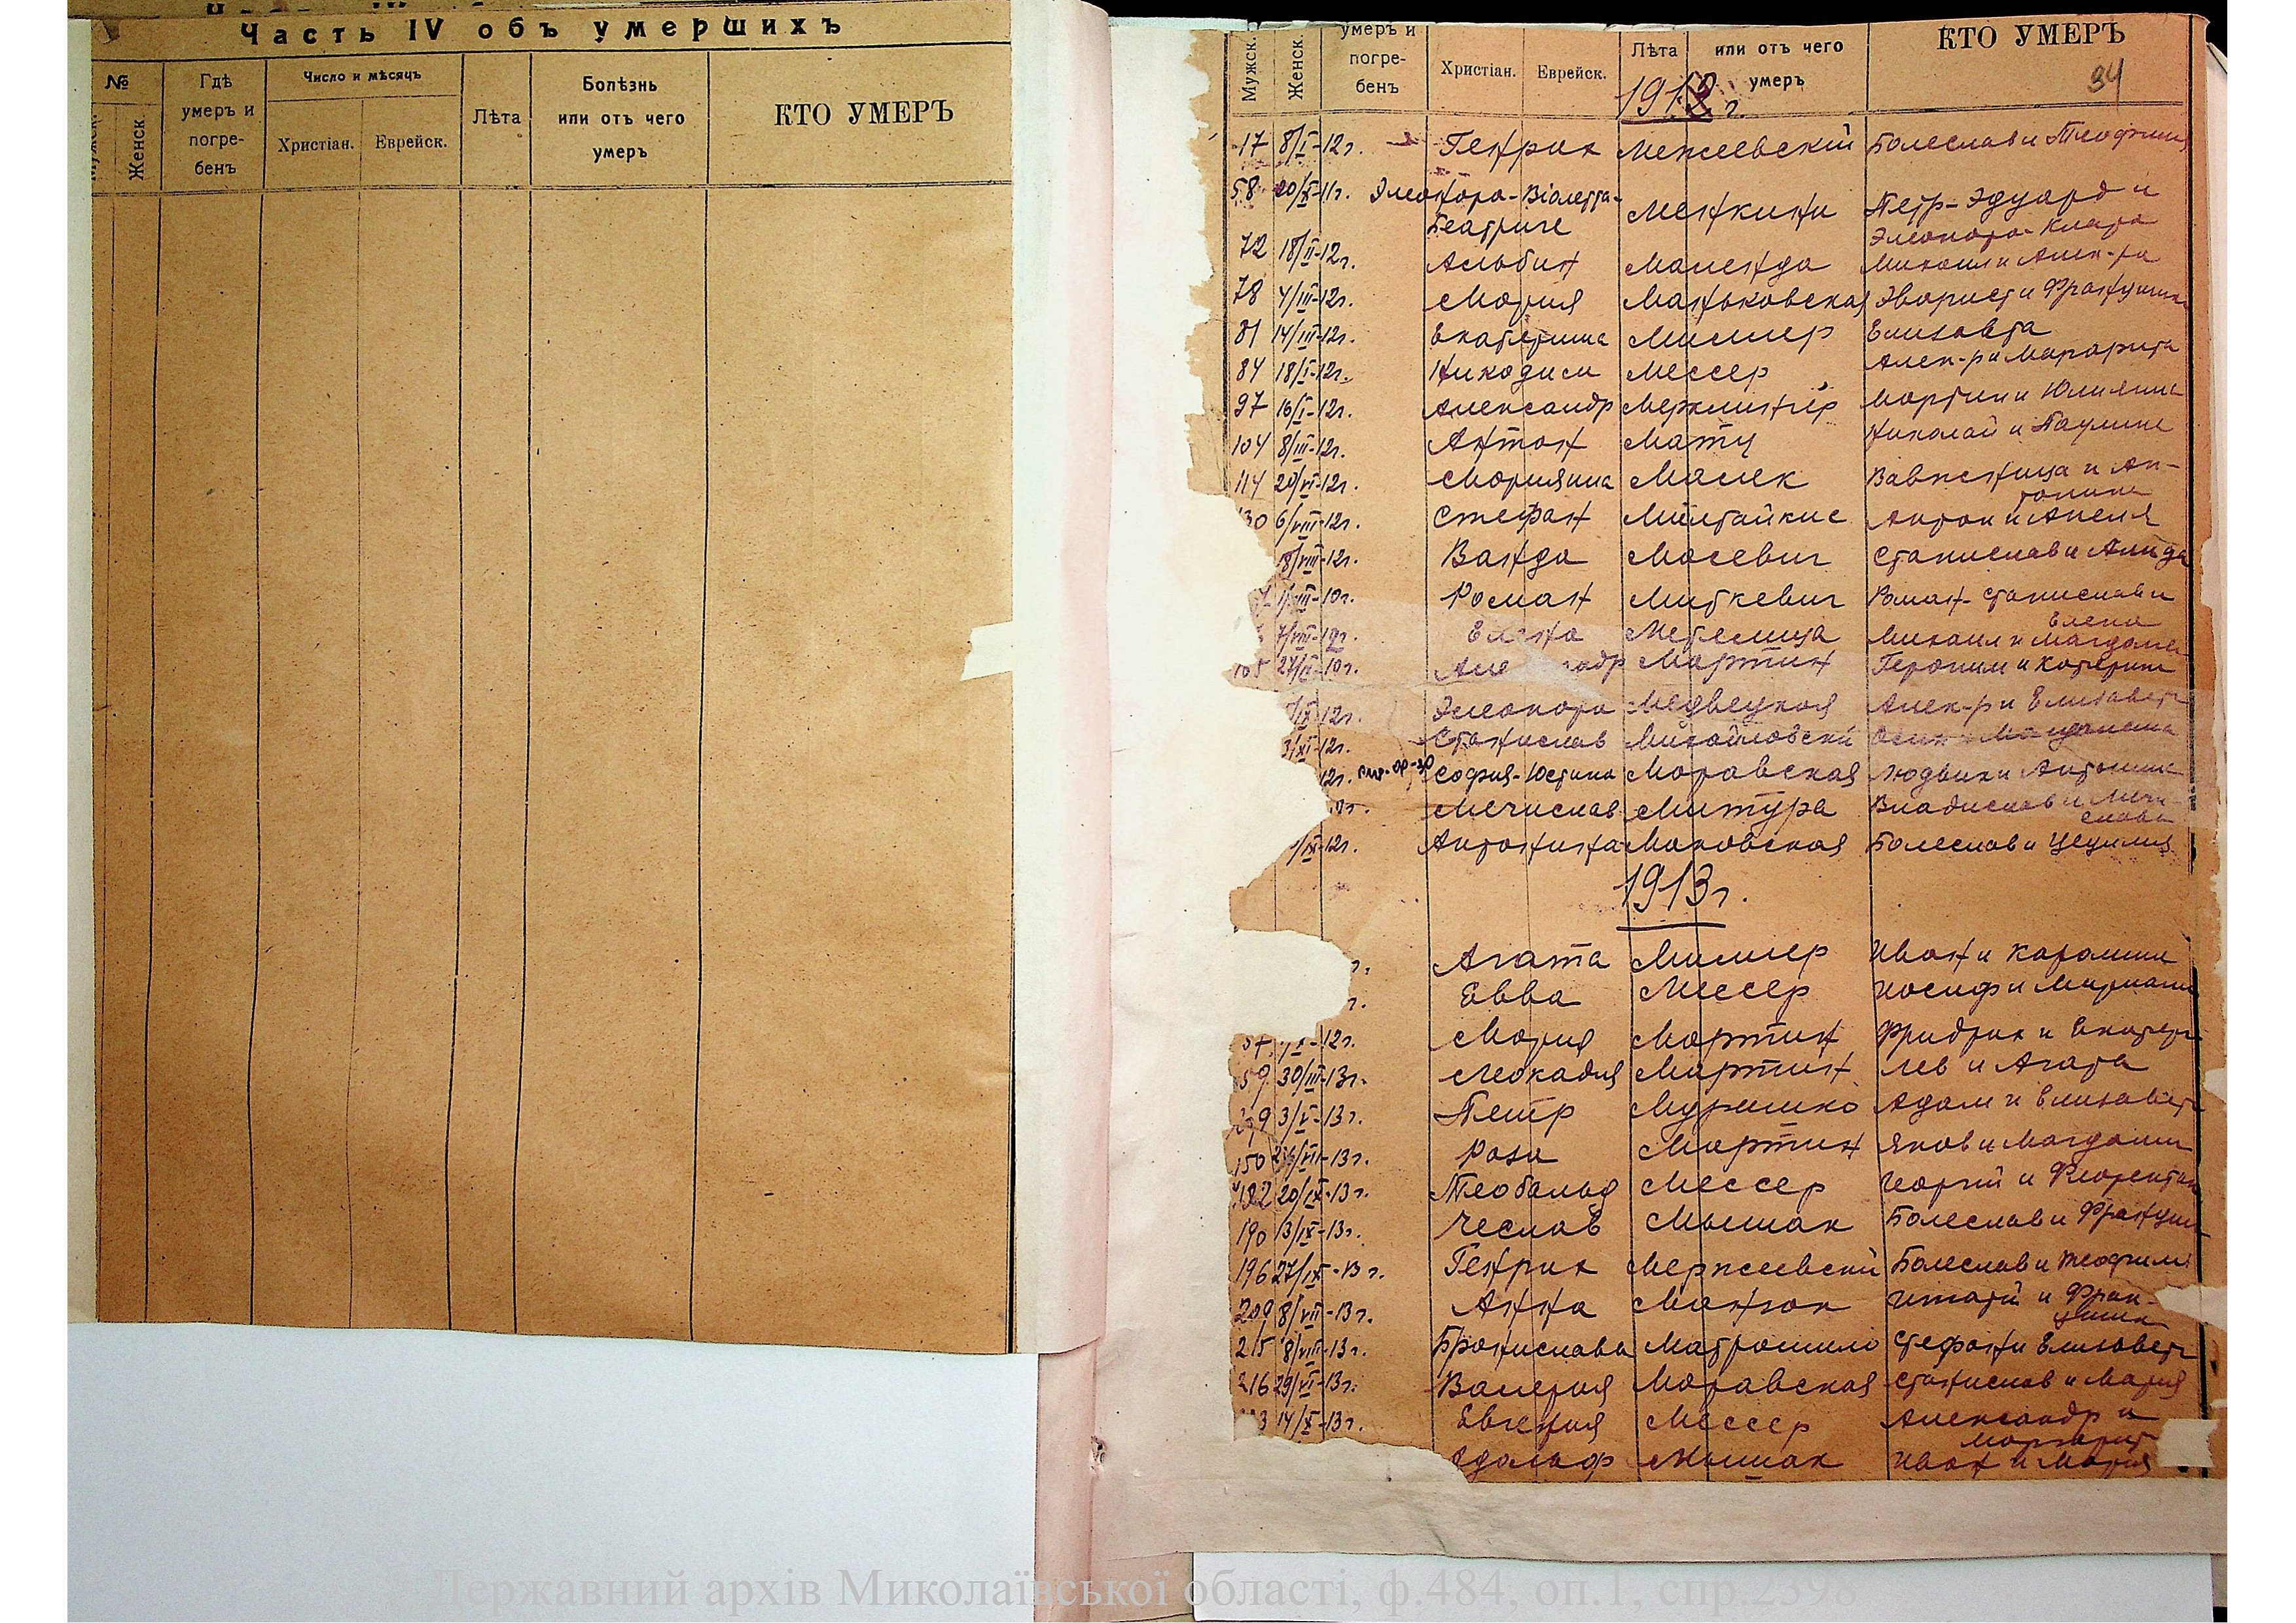 Часть IV объ умершихъ
№
Мужск.
Женск
Гдѣ умеръ и погре-бенъ
Число и мѣсяцъ
Христіан.
Еврейск.
Лѣта
Болѣзнь или отъ чего умеръ
КТО УМЕРЪ
Мужск.
Женск.
умеръ и погре-бенъ
Христіан.
Еврейск.
Лѣта
или отъ чего умеръ
КТО УМЕРЪ
94
1912 г.
17 8/I-12г. Генрих Межеевский Болеслав и Теофилия
58 20/X-11г. Элеонора-Віолетта- Менкини Петр-Эдуард и
Беатриче Элеонора-Клара
72 18/II-12г. Альбин Маленда Михаил и Алек-ра
78 4/III-12г. Мария Маньковская Эварист и Францишка
81 14/III-12г. Екатерина Миллер Елизавта
84 18/I-12г. Никодим Мессер Алек-р и Маргарита
97 16/I-12г. Александр Мерклингер Мартин и Юлияна
104 8/III-12г. Антон Матц Николай и Паулина
114 20/VI-12г. Марияна Малек Вавжинца и Ан-
тонина
130 6/VIII-12г. Стефан Милтайкис Антон и Анеля
18/VIII-12г. Ванда Масевич Станислав и Алида
-10г. Роман Миткевич Роман-Станислав и
Елена
7/VIII-12г. Елена Метелица Михаил и Магдалена
105 27/II-10г. Але адр Мартин Героним и Катерина
/IX-12г. Элеонора Медвецкая Алек-р и Елизавета
3/XI-12г. Станислав Михайловски Осип
12г. София-Юстина Моравская Людвик и Антонина
Мечислав Митура Владислав и Мечи-
слава
1/IX-12г. Антонина Маковская Болеслав и Цецилия
1913г.
г. Агата Миллер Иван и Каролина
г. Евва Мессер Иосиф и Мариана
-12г. Мария Мартин Фридрих и Екатер
59 30/III-13г. Леокадия Мартин Лев и Агата
3/V-13г. Петр Мурашко Адам и Елизавета
150 26/VII-13г. Роза Мартин Яков и Магдалина
182 20/IX-13г. Теобальд Мессер Георгий и Флорентина
190 13/IX-13г. Чеслав Мышак Болеслав и Францишка
196 27/IX-13г. Генрих Мержеевский Болеслав и Теофилия
209 8/VII-13г. Анна Манзюк Игнатий и Фран-
цишка
215 8/VIII-13г. Бронислава Матрошило Стефан и Елизавета
216 29/VI-13г. Валерия Моравская Станислав и Мария
3 14/X-13г. Евгения Мессер Александр и
Маргарита
Адольф Мышак Иван и Мария
Державний архів Миколаївської області, ф.484, оп.1, спр.2398